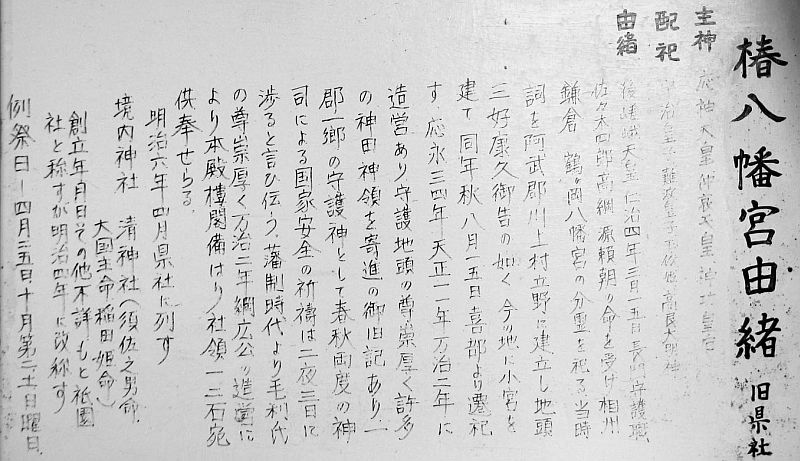 椿八幡宮由緒 旧県社
主神 応神天皇 仲哀天皇 神功皇后
配祀
由緒 後嵯峨天皇 仁治四年三月一五日長門守護職
佐々木四郎高綱 源頼朝の命を受け 相州
鎌倉 鶴ヶ岡八幡宮の分霊を祀る 当時
詞を阿武郡川上村立野に建立し地頭
三好康久御告の如く 今の地に小宮を
建て 同年秋 八月一五日喜部より遷祀
す 応永三四年 天正一一年 万治二年に
造営あり守護地頭の尊崇厚く許多
の神田神領を寄進の御旧記あり 一
郡一郷の守護神として春秋両度の神
司による国家安全の祈祷は二夜三日に
渉ると言ひ伝う 藩制時代より毛利代
の尊崇厚く万治二年綱広公の造営に
より本殿樓閣備はり 社領一三石宛
供奉せらる
明治六年四月県社に列す
境内神社 清神社(須佐之男命
大国主命 稲田姫命)
創立年月日その他不詳 もと祇園
社と称すが明治四年に改称す
例祭日 四月二五日、十月第二土日曜日